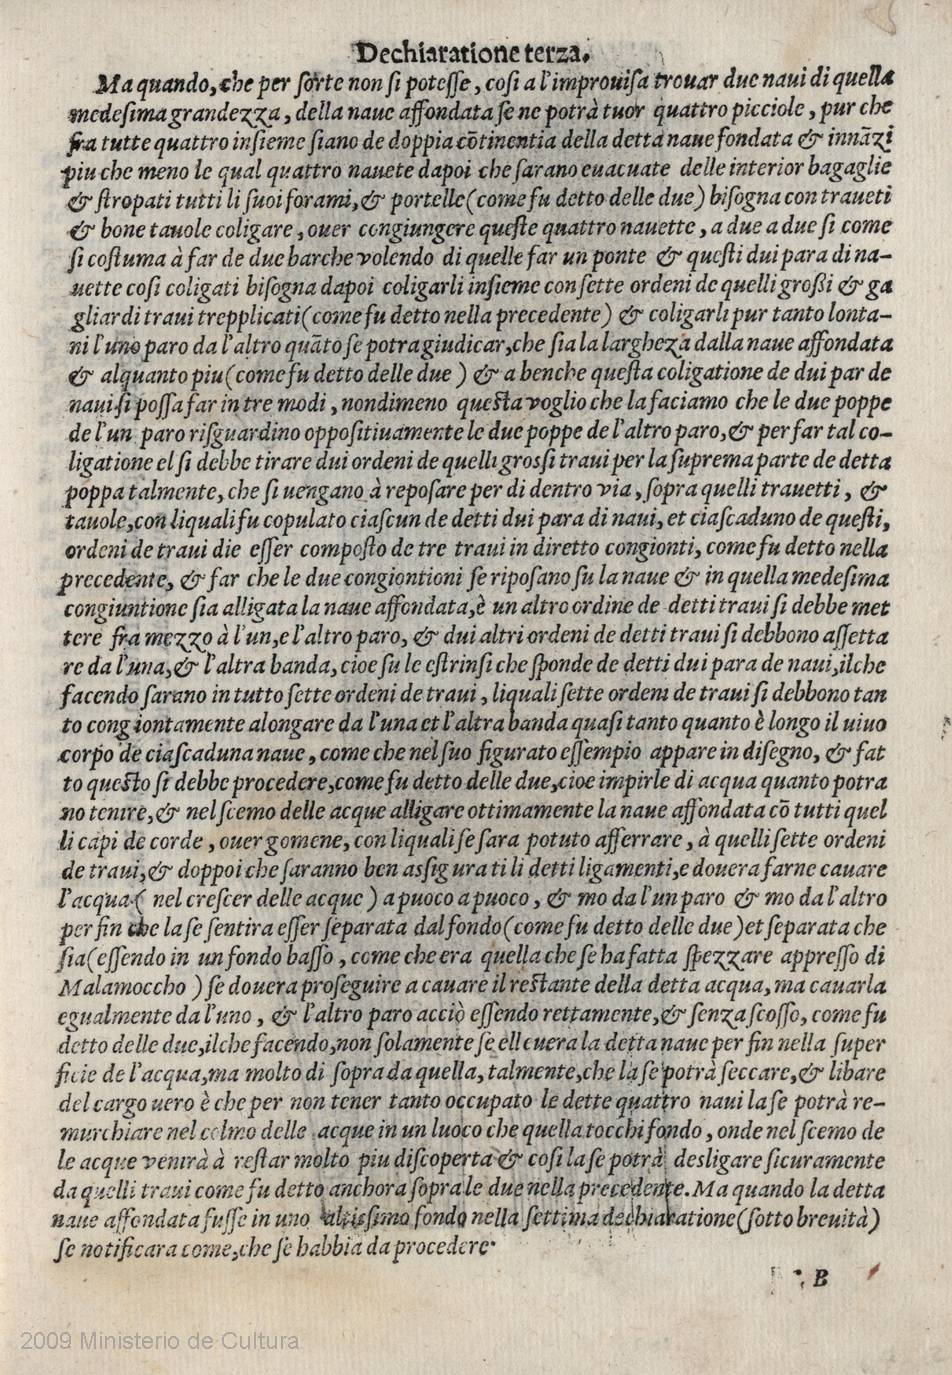 Dechiaratione terza.
Ma quando, che per sorte non si potesse, cosi a l'improuisa trouar due naui di quella
medesima grandezza, della naue affondata se ne potrà tuor quattro picciole, pur che
fra tutte quattro insieme siano de doppia cõtinentia della detta naue fondata & innãzi
piu che meno le qual quattro nauete dapoi che sarano euacuate delle interior bagaglie
& stropati tutti li suoi forami, & portelle (come fu detto delle due) bisogna con traueti
& bone tauole coligare, ouer congiungere queste quattro nauette, a due a due si come
si costuma à far de due barche volendo di quelle far un ponte & questi dui para di na-
uette cosi coligati bisogna dapoi coligarli insieme con sette ordeni de quelli grossi & ga
gliardi traui trepplicati (come fu detto nella precedente) & coligarli pur tanto lonta-
ni l'uno paro da l'altro quãto se potra giudicar, che sia la larghеza dalla naue affondata
& alquanto piu (come fu detto delle due) & a benche questa coligatione de dui par de
naui si possa far in tre modi, nondimeno questa voglio che la faciamo che le due poppe
de l'un paro risguardino oppositiuamente le due poppe de l'altro paro, & per far tal co-
ligatione el si debbe tirare dui ordeni de quelli grossi traui per la suprema parte de detta
poppa talmente, che si uengano à reposare per di dentro via, sopra quelli trauetti, &
tauole, con liquali fu copulato ciascun de detti dui para di naui, et ciascaduno de questi,
ordeni de traui die esser composto de tre traui in diretto congionti, come fu detto nella
precedente, & far che le due congiontioni se riposano su la naue & in quella medesima
congiuntione sia alligata la naue affondata, è un altro ordine de detti traui si debbe met
tere fra mezzo à l'un, e l'altro paro, & dui altri ordeni de detti traui si debbono assetta
re da l'una, & l'altra banda, cioe su le estrinsiche sponde de detti dui para de naui, ilche
facendo sarano in tutto sette ordeni de traui, liquali sette ordeni de traui si debbono tan
to congiontamente alongare da l'una et l'altra banda quasi tanto quanto è longo il uiuo
corpo de ciascaduna naue, come che nel suo figurato essempio appare in disegno, & fat
to questo si debbe procedere, come fu detto delle due, cioe impirle di acqua quanto potra
no tenire, & nel scemo delle acque alligare ottimamente la naue affondata cõ tutti quel
li capi de corde, ouer gomene, con liquali se sara potuto afferrare, à quelli sette ordeni
de traui, & doppoi che saranno ben assigurati li detti ligamenti, e douera farne cauare
l'acqua ( nel crescer delle acque ) a puoco a puoco, & mo da l'un paro & mo da l'altro
per fin che la se sentira esser separata dal fondo (come fu detto delle due) et separata che
sia (essendo in un fondo basso, come che era quella che se ha fatta spezzare appresso di
Malamoccho ) se douera proseguire a cauare il restante della detta acqua, ma cauarla
egualmente da l'uno, & l'altro paro acciò essendo rettamente, & senza scosso, come fu
detto delle due, ilche facendo, non solamente se elleuera la detta naue per fin nella super
ficie de l'acqua, ma molto di sopra da quella, talmente, che la se potrà seccare, & libare
del cargo uero è che per non tener tanto occupato le dette quattro naui la se potrà re-
murchiare nel colmo delle acque in un luoco che quella tocchi fondo, onde nel scemo de
le acque venirà à restar molto piu discoperta & cosi la se potrà desligare sicuramente
da quelli traui come fu detto anchora sopra le due nella precedente. Ma quando la detta
naue affondata fusse in uno altissimo fondo nella settima dechiaratione (sotto breuità)
se notificara come, che se habbia da procedere.
B
2009 Ministerio de Cultura